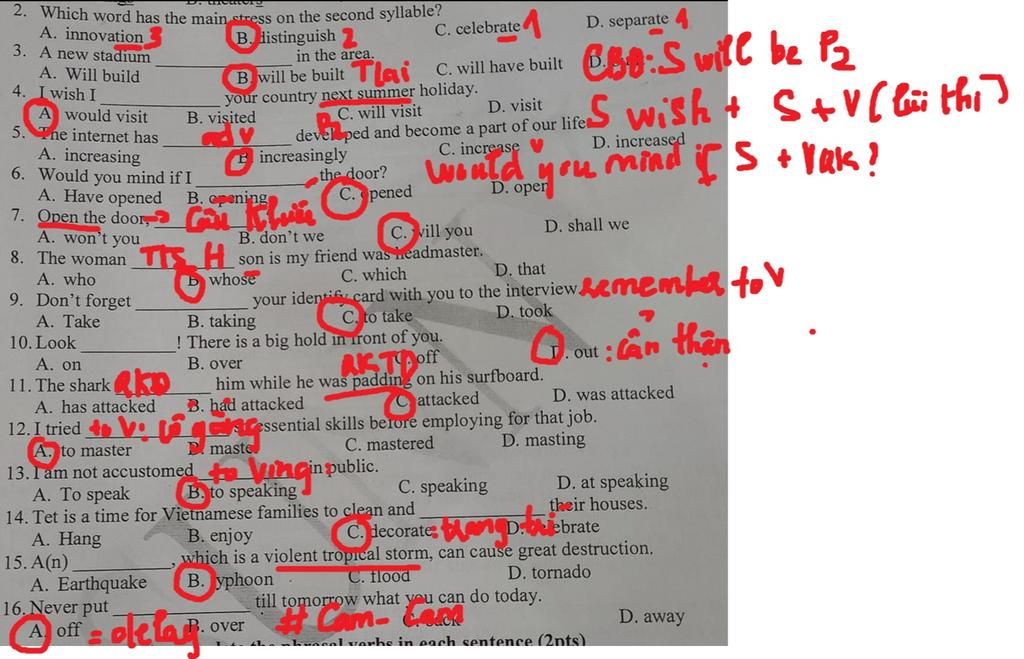 2. Which word has the main stress on the second syllable?
A. innovation 3 B. distinguish 2 C. celebrate 1 D. separate 1
3. A new stadium __________ in the area.
A. Will build B. will be built TLai C. will have built D. CBĐ: S will be P2
4. I wish I __________ your country next summer holiday.
A. would visit B. visited C. will visit D. visit S wish + S + V (lùi thì)
5. The internet has adv developed and become a part of our life P2
A. increasing B. increasingly C. increase V D. increased
6. Would you mind if I __________ the door? Would you mind if S + Vqk?
A. Have opened B. opening C. opened D. open
7. Open the door, → Câu khiến
A. won't you B. don't we C. will you D. shall we
8. The woman TTS H son is my friend was headmaster.
A. who B. whose C. which D. that
9. Don't forget __________ your identify card with you to the interview. remember to V
A. Take B. taking C. to take D. took
10. Look __________! There is a big hold in front of you.
A. on B. over C. off D. out : cẩn thận
11. The shark QKĐ him while he was padding on his surfboard. QKTD
A. has attacked B. had attacked C. attacked D. was attacked
12. I tried to V: cố gắng essential skills before employing for that job.
A. to master B. master C. mastered D. masting
13. I am not accustomed to Ving in public.
A. To speak B. to speaking C. speaking D. at speaking
14. Tet is a time for Vietnamese families to clean and __________ their houses.
A. Hang B. enjoy C. decorate: trang trí D. celebrate
15. A(n) __________, which is a violent tropical storm, can cause great destruction.
A. Earthquake B. typhoon C. flood D. tornado
16. Never put __________ till tomorrow what you can do today.
A. off = delay B. over # Cam - Cam D. away
the phrasal verbs in each sentence (2pts)